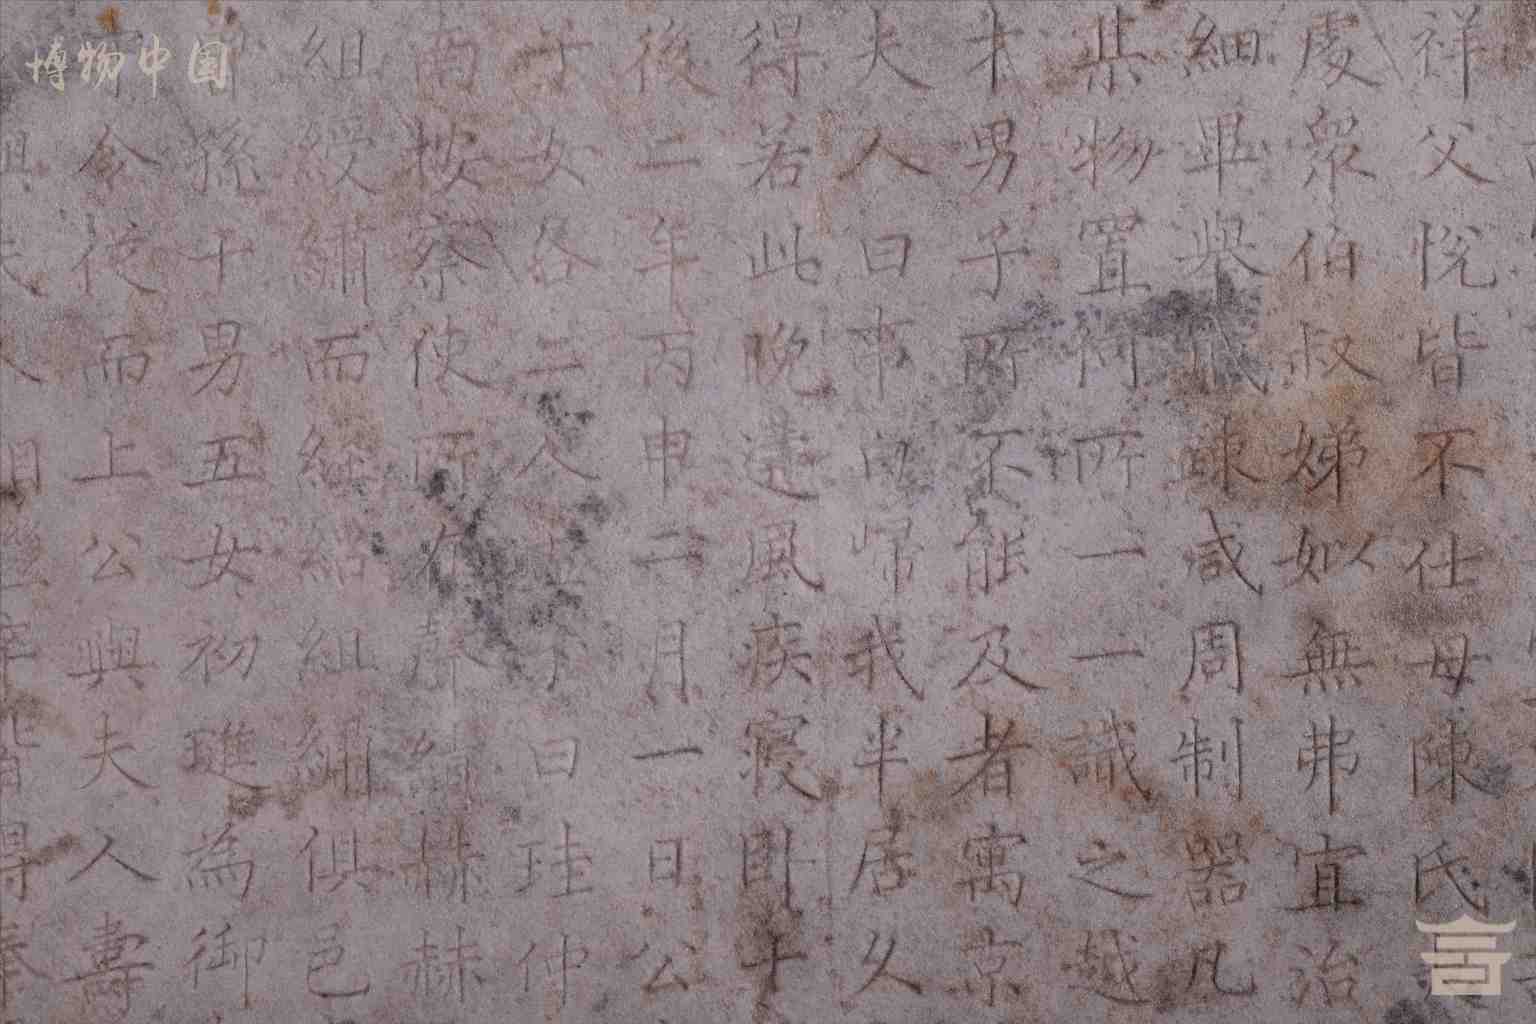 祥父悅皆不仕母陳氏
處衆伯叔娣如無弗宜治
細畢舉疎咸周制器凡
某物置何所一一識之越
男子所不能及者寓京
夫人曰事歸我半居久
得若此晚遘風疾寢卧十
後二年丙申二月一日公
子女各二人子曰珪仲
南按察使所在聲績赫赫
組綬繡而紹組繩俱邑
孫十男五女初璡為御
令使而上公與夫人壽
博物中国